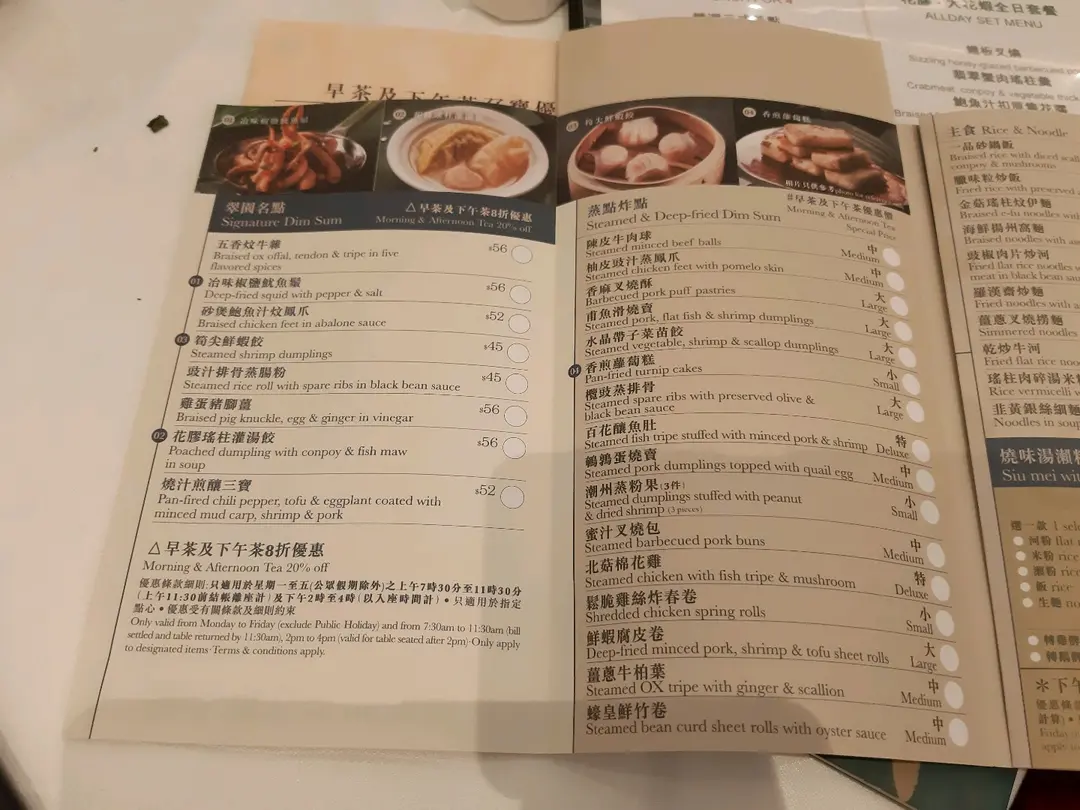 早茶及下午茶
花膠・大花蝦全日套餐
ALLDAY SET MENU
鐵板叉燒
Sizzling honey-glazed barbecued
翡翠蟹肉瑤柱羹
Crabmeat, conpoy & vegetable thick
01 冶味椒鹽魷魚鬚
02
03 筍尖鮮蝦餃
04 香煎蘿蔔糕
相片只供參考 photo for reference
翠園名點
Signature Dim Sum
△早茶及下午茶8折優惠
Morning & Afternoon Tea 20% off
五香炆牛雜
Braised ox offal, tendon & tripe in five
flavored spices
$56
01 冶味椒鹽魷魚鬚
Deep-fried squid with pepper & salt
$56
砂煲鮑魚汁炆鳳爪
Braised chicken feet in abalone sauce
$52
03 筍尖鮮蝦餃
Steamed shrimp dumplings
$45
豉汁排骨蒸腸粉
Steamed rice roll with spare ribs in black bean sauce
$45
雞蛋豬腳薑
Braised pig knuckle, egg & ginger in vinegar
$56
02 花膠瑤柱灌湯餃
Poached dumpling with conpoy & fish maw
in soup
$56
燒汁煎釀三寶
Pan-fired chili pepper, tofu & eggplant coated with
minced mud carp, shrimp & pork
$52
△早茶及下午茶8折優惠
Morning & Afternoon Tea 20% off
優惠條款細則:只適用於星期一至五(公眾假期除外)之上午7時30分至11時30分
(上午11:30前結帳離座計)及下午2時至4時(以入座時間計)•只適用於指定
點心•優惠受有關條款及細則約束
Only valid from Monday to Friday (exclude Public Holiday) and from 7:30am to 11:30am (bill
settled and table returned by 11:30am), 2pm to 4pm (valid for table seated after 2pm)·Only apply
to designated items·Terms & conditions apply.
蒸點炸點
Steamed & Deep-fried Dim Sum
#早茶及下午茶優惠價
Morning & Afternoon Tea
Special Price
陳皮牛肉球
Steamed minced beef balls
中
Medium
柚皮豉汁蒸鳳爪
Steamed chicken feet with pomelo skin
中
Medium
香麻叉燒酥
Barbecued pork puff pastries
大
Large
甫魚滑燒賣
Steamed pork, flat fish & shrimp dumplings
大
Large
水晶帶子菜苗餃
Steamed vegetable, shrimp & scallop dumplings
大
Large
04 香煎蘿蔔糕
Pan-fried turnip cakes
小
Small
欖豉蒸排骨
Steamed spare ribs with preserved olive &
black bean sauce
大
Large
百花釀魚肚
Steamed fish tripe stuffed with minced pork & shrimp
特
Deluxe
鵪鶉蛋燒賣
Steamed pork dumplings topped with quail egg
中
Medium
潮州蒸粉果(3件)
Steamed dumplings stuffed with peanut
& dried shrimp (3 pieces)
小
Small
蜜汁叉燒包
Steamed barbecued pork buns
中
Medium
北菇棉花雞
Steamed chicken with fish tripe & mushroom
特
Deluxe
鬆脆雞絲炸春卷
Shredded chicken spring rolls
小
Small
鮮蝦腐皮卷
Deep-fried minced pork, shrimp & tofu sheet rolls
大
Large
薑蔥牛柏葉
Steamed OX tripe with ginger & scallion
中
Medium
蠔皇鮮竹卷
Steamed bean curd sheet rolls with oyster sauce
中
Medium
主食 Rice & Noodle
一品砂鍋飯
Braised rice with diced
conpoy & mushrooms
臘味粒炒飯
Fried rice with preserved
金菇瑤柱炆伊麵
Braised e-fu noodles with
海鮮揚州窩麵
Braised noodles with
豉椒肉片炒河
Fried flat rice noodles
meat in black bean
羅漢齋炒麵
Fried noodles with
薑蔥叉燒撈麵
Simmered noodles
乾炒牛河
Fried flat rice
瑤柱肉碎湯米
Rice vermicelli
韭黃銀絲細麵
Noodles in soup
燒味湯瀨粉
Siu mei
選一款 1
河粉 flat
米粉 rice
瀨粉 rice
飯 rice
生麵
＊下午
優惠條
計算)•